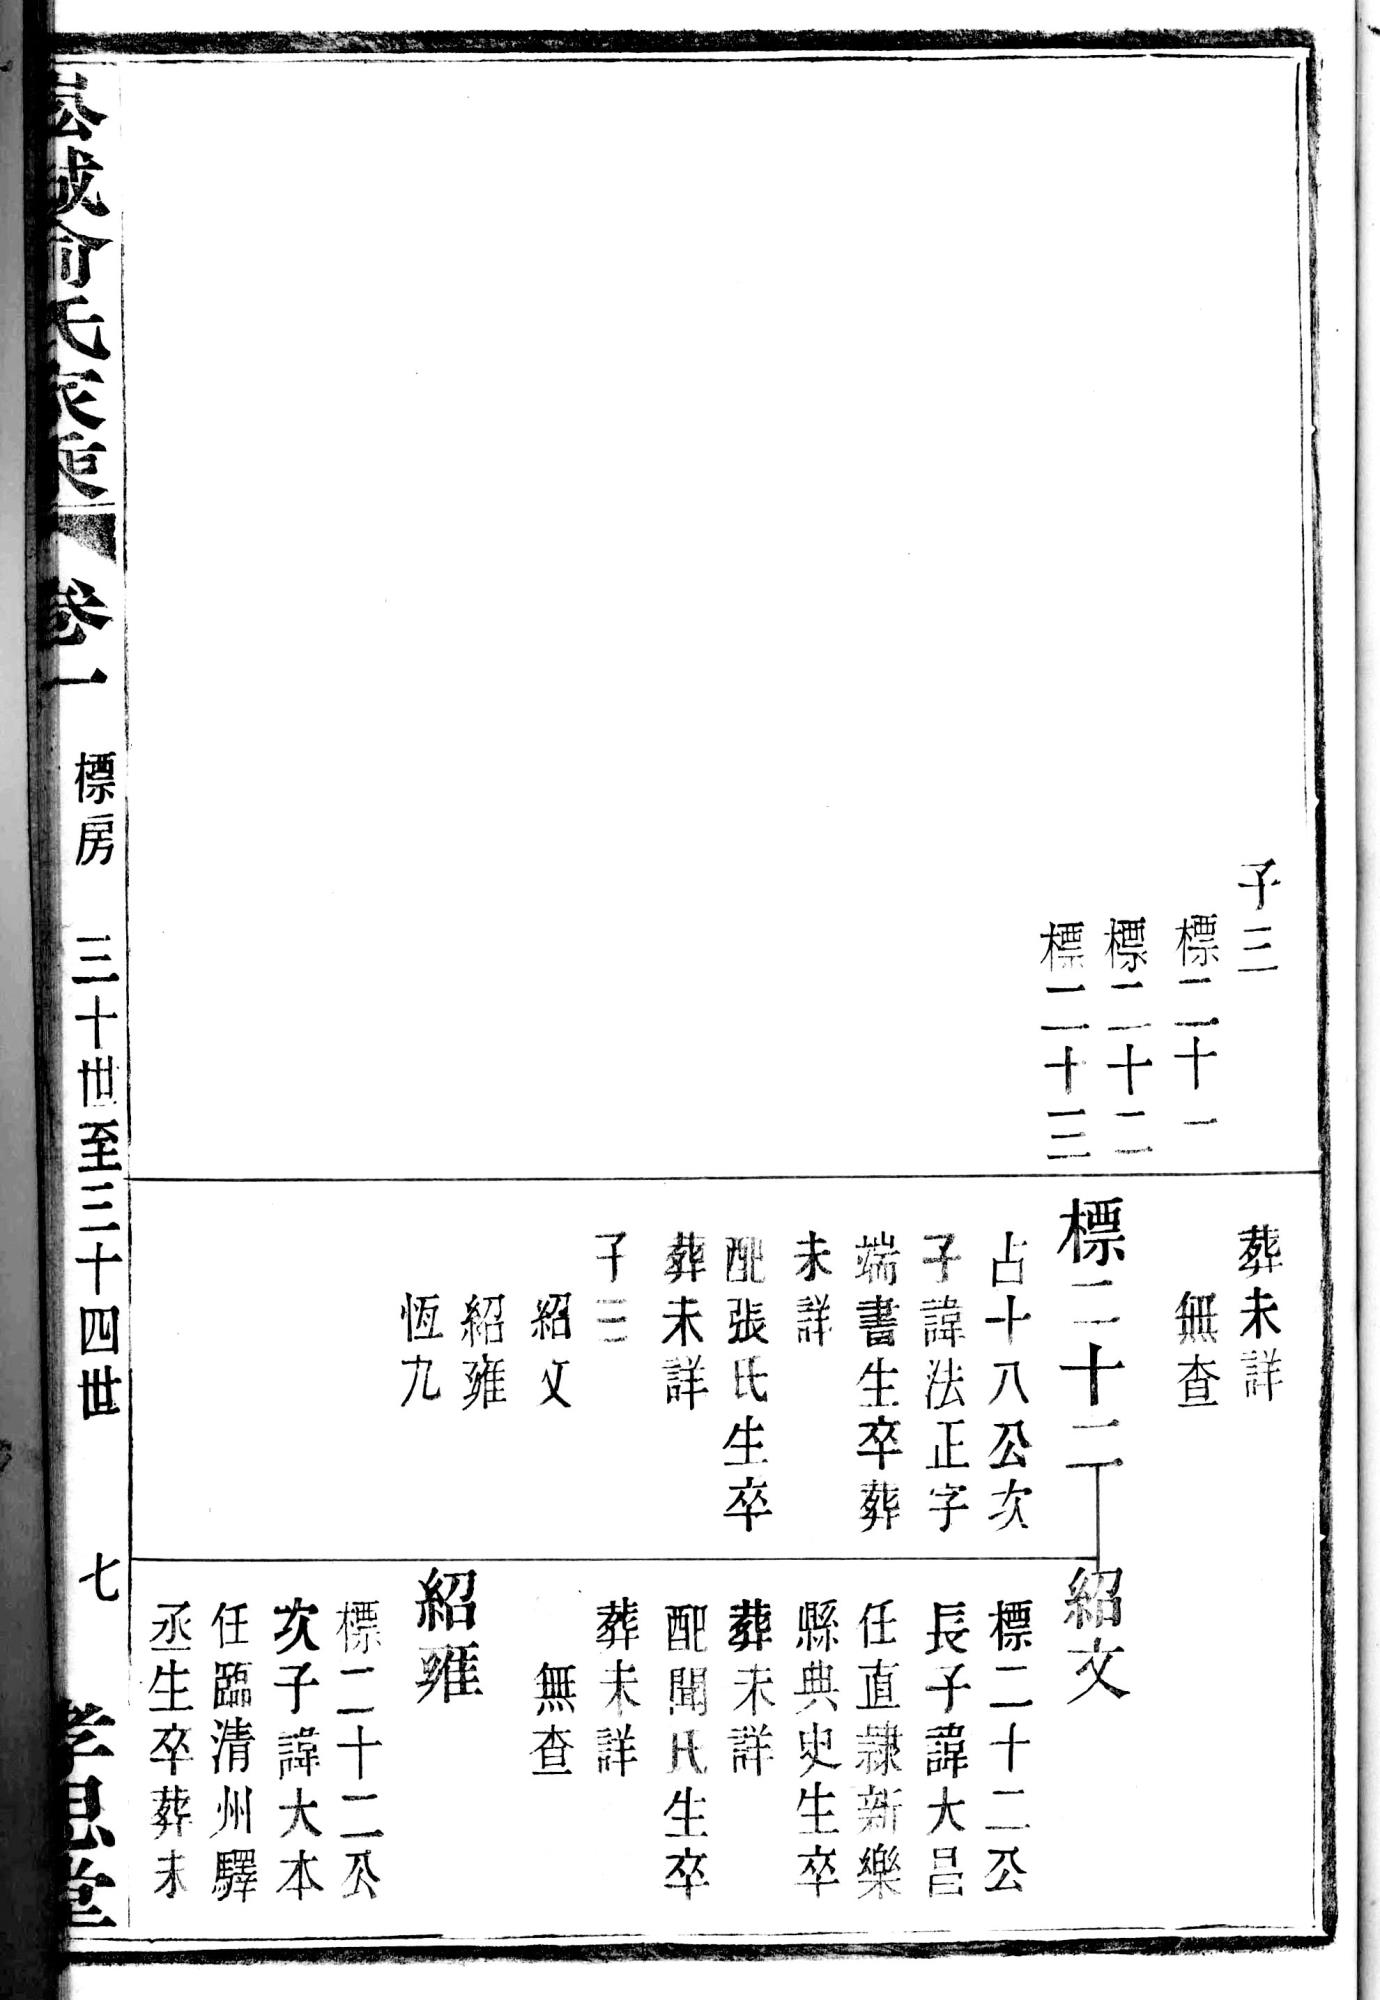 子三
標二十一
標二十二
標二十三
葬未詳
無查
標二十二
占十八公次
子諱法正字
端書生卒葬
未詳
配張氏生卒
葬未詳
子三
紹文
紹雍
恆九
紹文
標二十二公
長子諱大昌
任直隸新樂
縣典史生卒
葬未詳
配聞氏生卒
葬未詳
無查
紹雍
標二十二公
次子諱大本
任臨清州驛
丞生卒葬未
城俞氏家乘
卷一
標房
三十世至三十四世
七
孝思堂